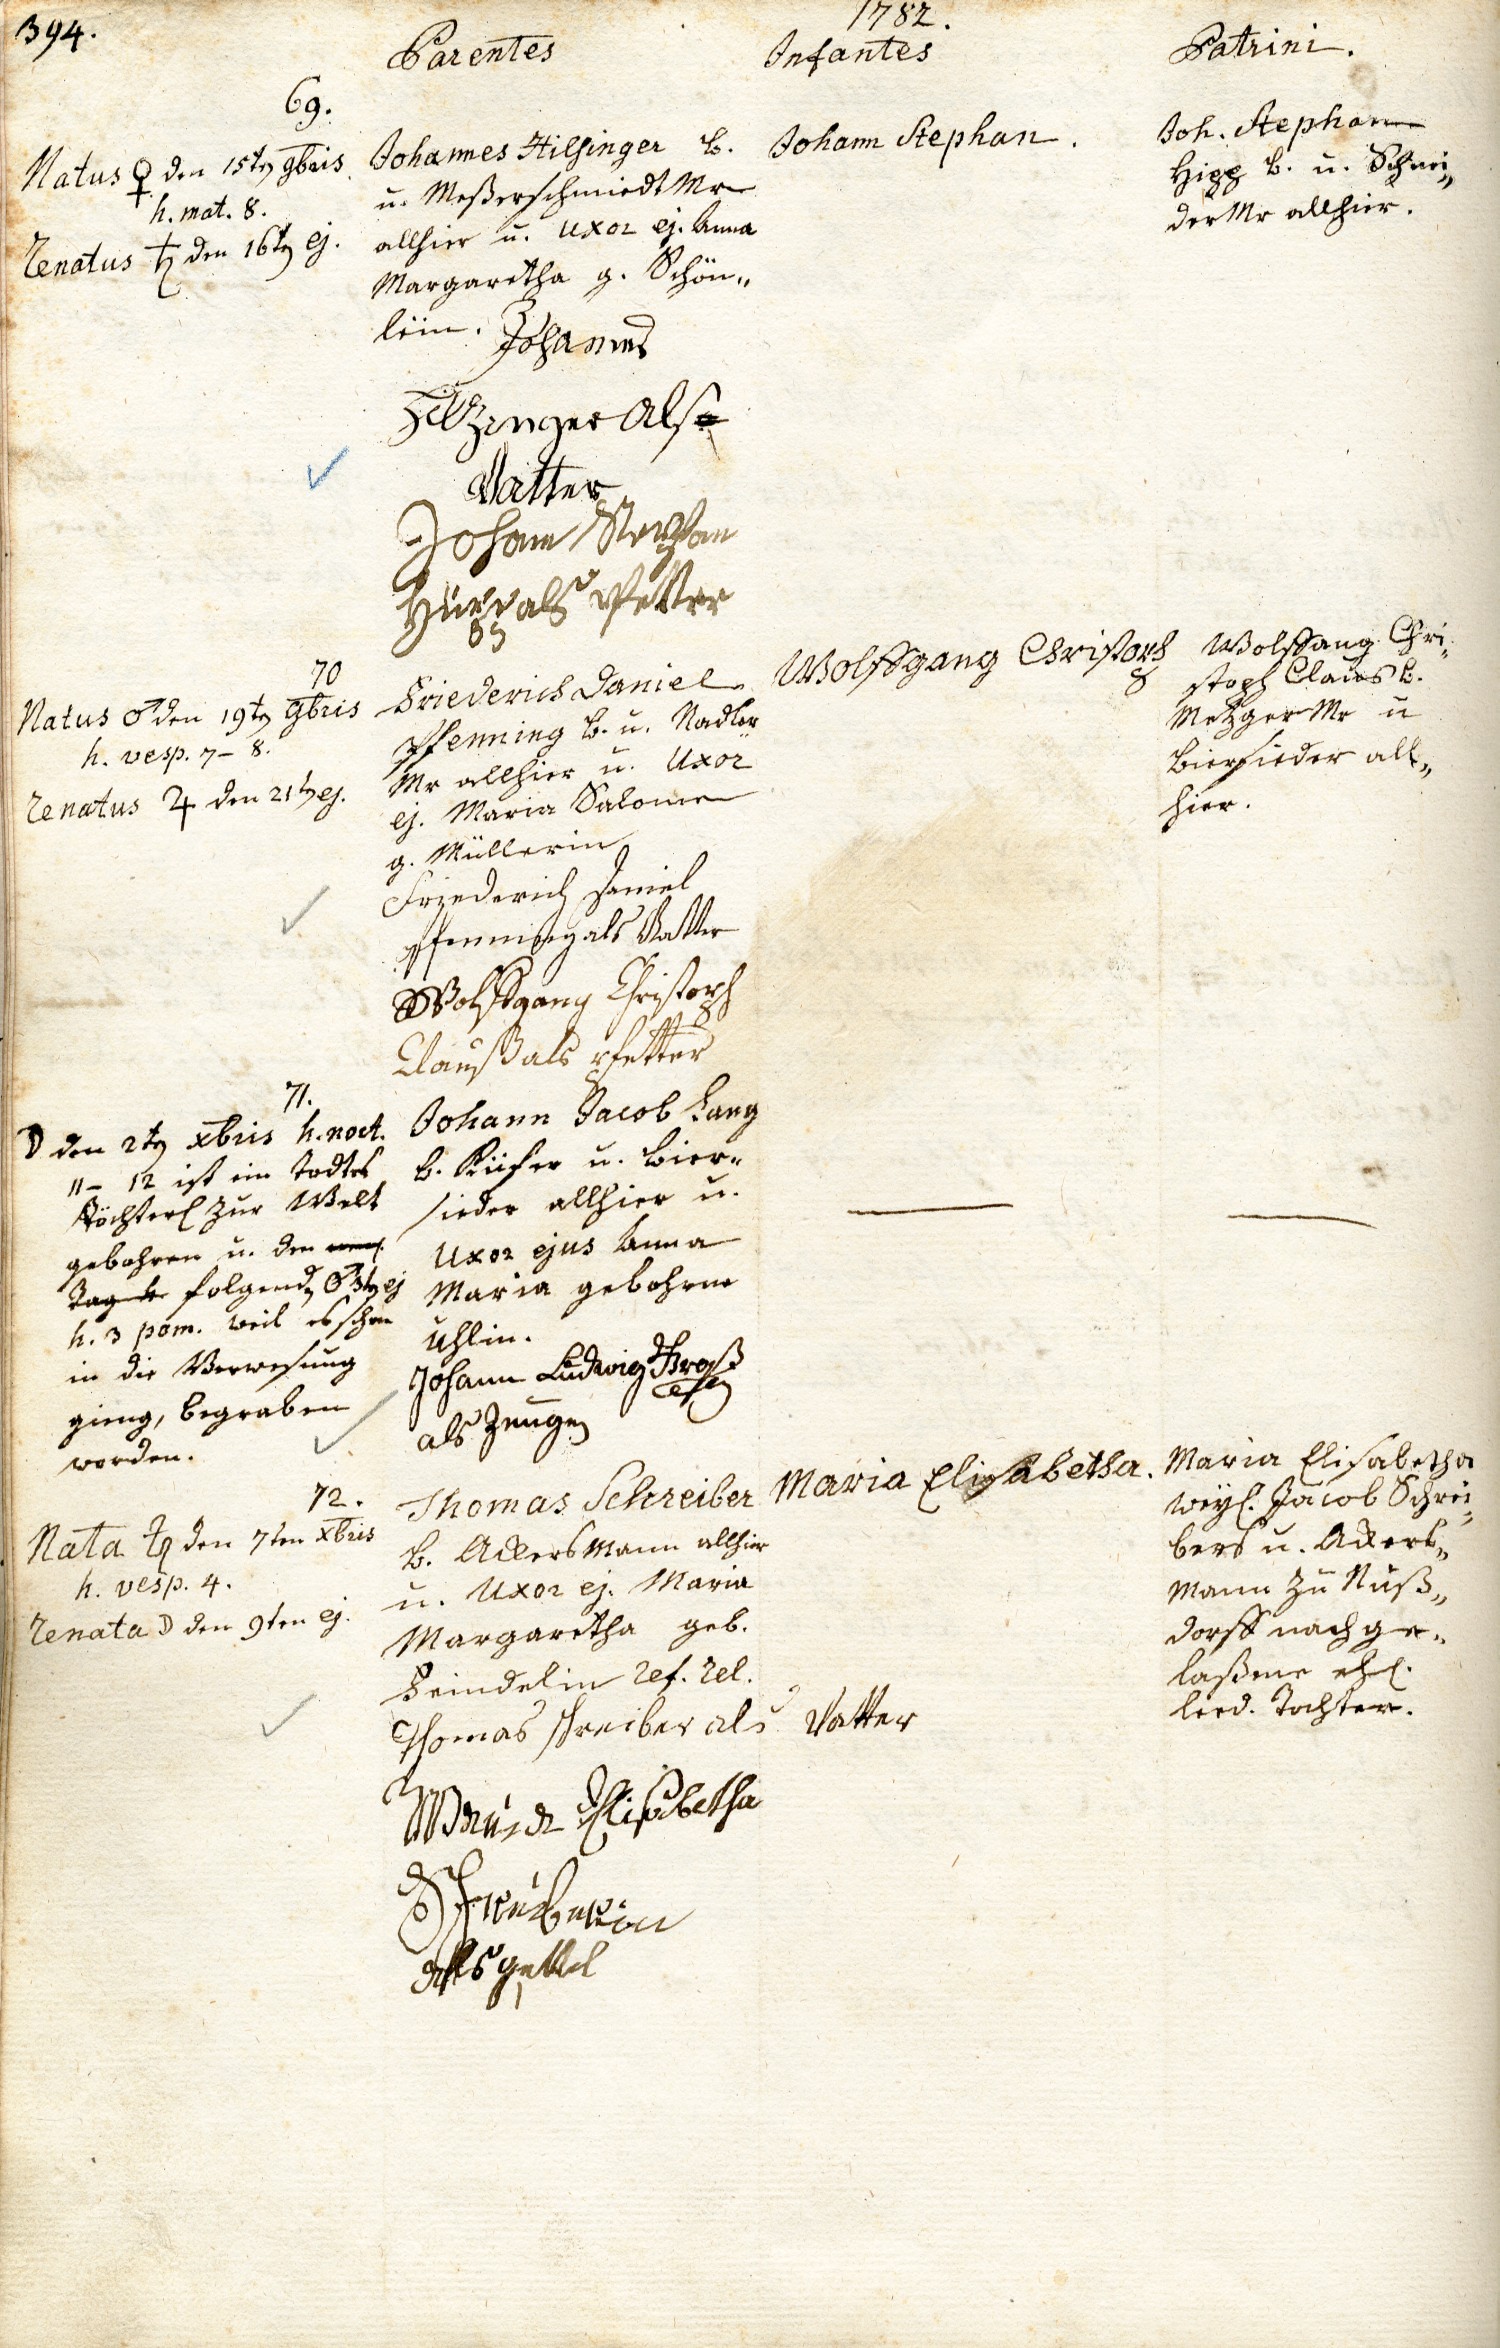 394.
1782.
Parentes
Infantes
Patrini.
69.
Natus ♀ den 15ten 9bris
h. mat. 8.
Renatus ♄ den 16ten ej.
Johannes Hilsinger b.
u. Meßerschmiedt Mr
allhier u. Uxor ej. Anna
Margaretha g. Schön„
lein.
Johannes
Hilzinger als
Vatter
Johann Stephan
Hüpp als Petter
Johann Stephan.
Joh. Stephan
Hipp b. u. Schnei„
der Mr allhier.
70
Natus ♂ den 19ten 9bris
h. vesp. 7–8.
Renatus ♃ den 21ten ej.
Friederich Daniel
Pfenning b. u. Nadler
Mr allhier u. Uxor
ej. Maria Salome
g. Müllerin
Friederich Daniel
Pfennig als Vatter
Wolffgang Christoph
Clauß als Pfetter
Wolffgang Christoph
Wolffgang Chri„
stoph Claus b.
Metzger Mr u
Biersieder all„
hier.
71.
☽ den 2ten xbris h. noct.
11–12 ist ein todtes
Töchterl. zur Welt
gebohren u. den
Tag folgend ♂ 3ten ej
h. 3 pom. weil es schon
in die Verwesung
gieng, begraben
worden.
Johann Jacob Lang
b. Küfer u. Bier„
sieder allhier u.
Uxor ejus Anna
Maria gebohrne
Uhlin.
Johann Ludwig Groß
als Zeuge
72.
Nata ♄ den 7ten xbris
h. vesp. 4.
Renata ☽ den 9ten ej.
Thomas Schreiber
b. Ackersmann allhier
u. Uxor ej. Maria
Margaretha geb.
Feindelin ref. rel.
Thomas schreiber als Vatter
Maria Elisabetha
Schreiberin
als gettel
Maria Elisabetha.
Maria Elisabetha
weyl. Jacob Schrei„
bers u. Ackers„
mann zu Nuß„
dorff nachge„
laßene ehl.
leed. Tochter.